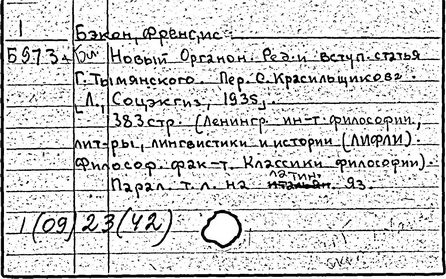 1
Бэкон, Френсис.
Б973 Новый Органон. Ред. и вступ. статья
Г. Тымянского. Пер. С. Красильщикова.
[Л.], Соцэкгиз, 1935.
383 стр. (Ленингр. ин-т философии,
лит-ры, лингвистики и истории (ЛИФЛИ).
Философ. фак-т. Классики философии).
Парал. т. л. на латин. яз.
1(09)23(42)